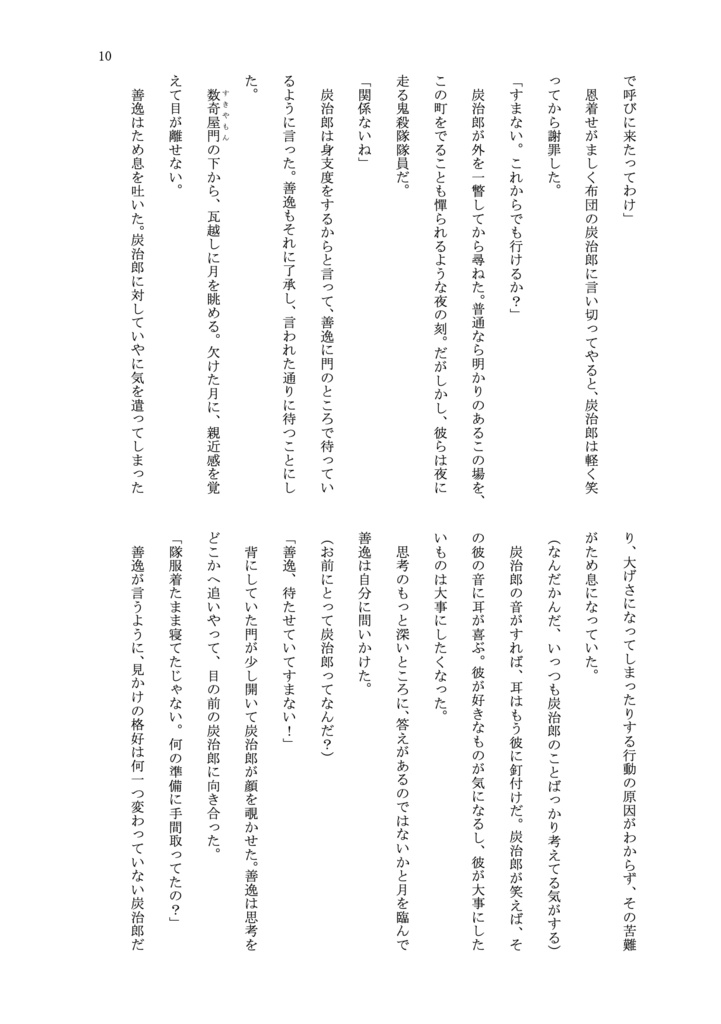 10
で呼びに来たってわけ」
　恩着せがましく布団の炭治郎に言い切ってやると、炭治郎は軽く笑
ってから謝罪した。
「すまない。これからでも行けるか？」
　炭治郎が外を一瞥してから尋ねた。普通なら明かりのあるこの場を、
この町をでることも憚られるような夜の刻。だがしかし、彼らは夜に
走る鬼殺隊隊員だ。
「関係ないね」
　炭治郎は身支度をするからと言って、善逸に門のところで待ってい
るように言った。善逸もそれに了承し、言われた通りに待つことにし
た。
　数奇屋門の下から、瓦越しに月を眺める。欠けた月に、親近感を覚
すきやもん
えて目が離せない。
　善逸はため息を吐いた。炭治郎に対していやに気を遣ってしまった
り、大げさになってしまったりする行動の原因がわからず、その苦難
がため息になっていた。
（なんだかんだ、いっつも炭治郎のことばっかり考えてる気がする）
　炭治郎の音がすれば、耳はもう彼に釘付けだ。炭治郎が笑えば、そ
の彼の音に耳が喜ぶ。彼が好きなものが気になるし、彼が大事にした
いものは大事にしたくなった。
　思考のもっと深いところに、答えがあるのではないかと月を臨んで
善逸は自分に問いかけた。
（お前にとって炭治郎ってなんだ？）
「善逸、待たせていてすまない！」
　背にしていた門が少し開いて炭治郎が顔を覗かせた。善逸は思考を
どこかへ追いやって、目の前の炭治郎に向き合った。
「隊服着たまま寝てたじゃない。何の準備に手間取ってたの？」
　善逸が言うように、見かけの格好は何一つ変わっていない炭治郎だ